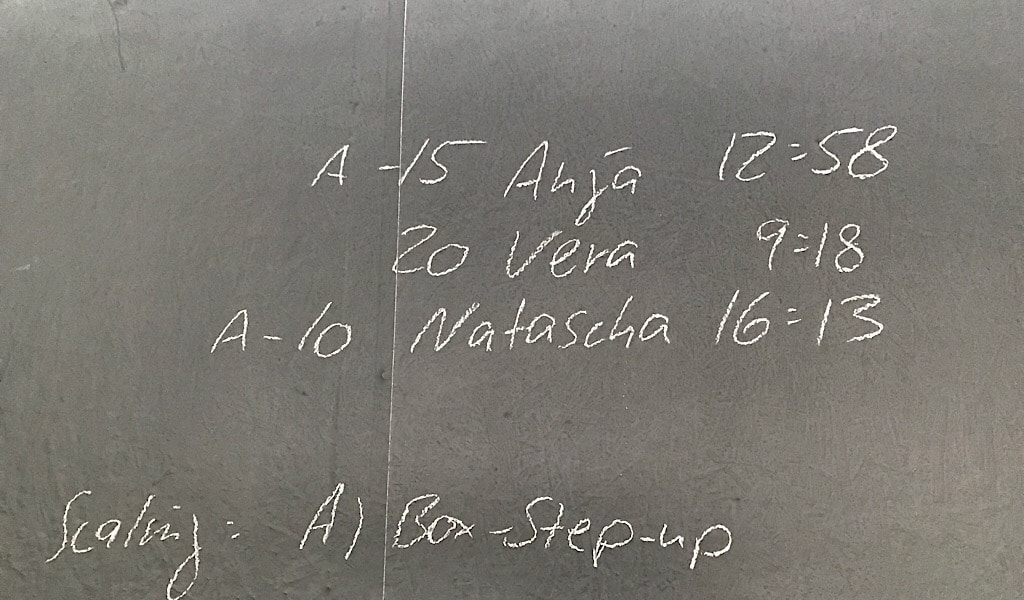 A-15 Anja 12:58
20 Vera 9:18
A-10 Natascha 16:13
Scaling: A) Box-Step-up